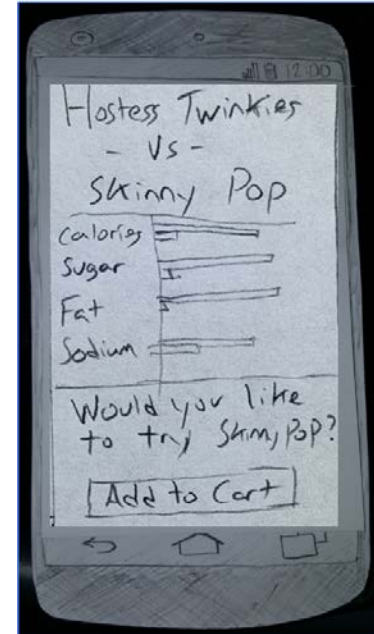 12:00
Hostess Twinkies
- Vs -
Skinny Pop
Calories
Sugar
Fat
Sodium
Would you like
to try SkinnyPop?
Add to Cart